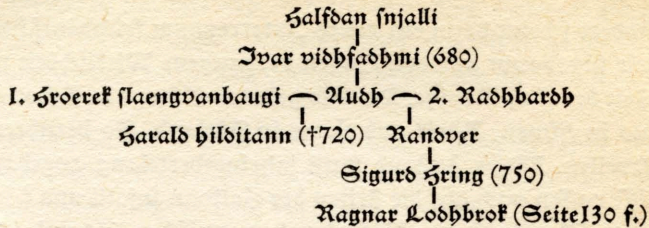 Halfdan snjalli
Ivar vidhfadhmi (680)
1. Hroerek slaengvanbaugi — Audh — 2. Radhbardh
Harald hilditann (†720) Randver
Sigurd Hring (750)
Ragnar Lodhbrok (Seite 130 f.)